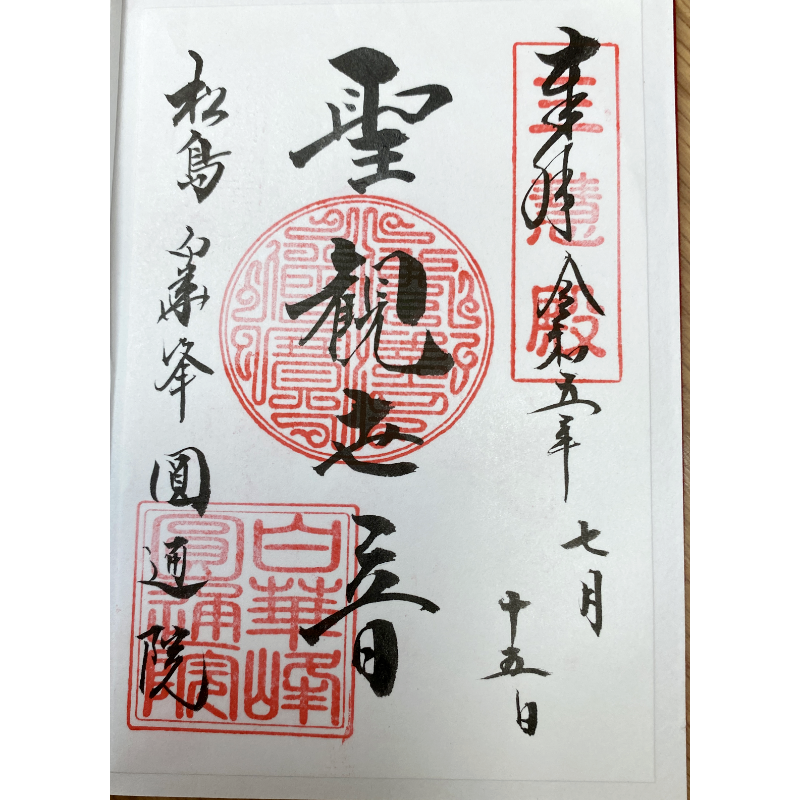 奉拝 令和五年 七月 十五日
三慧殿
聖観世音
松島 白華峯 圓通院
白華峰
圓通院